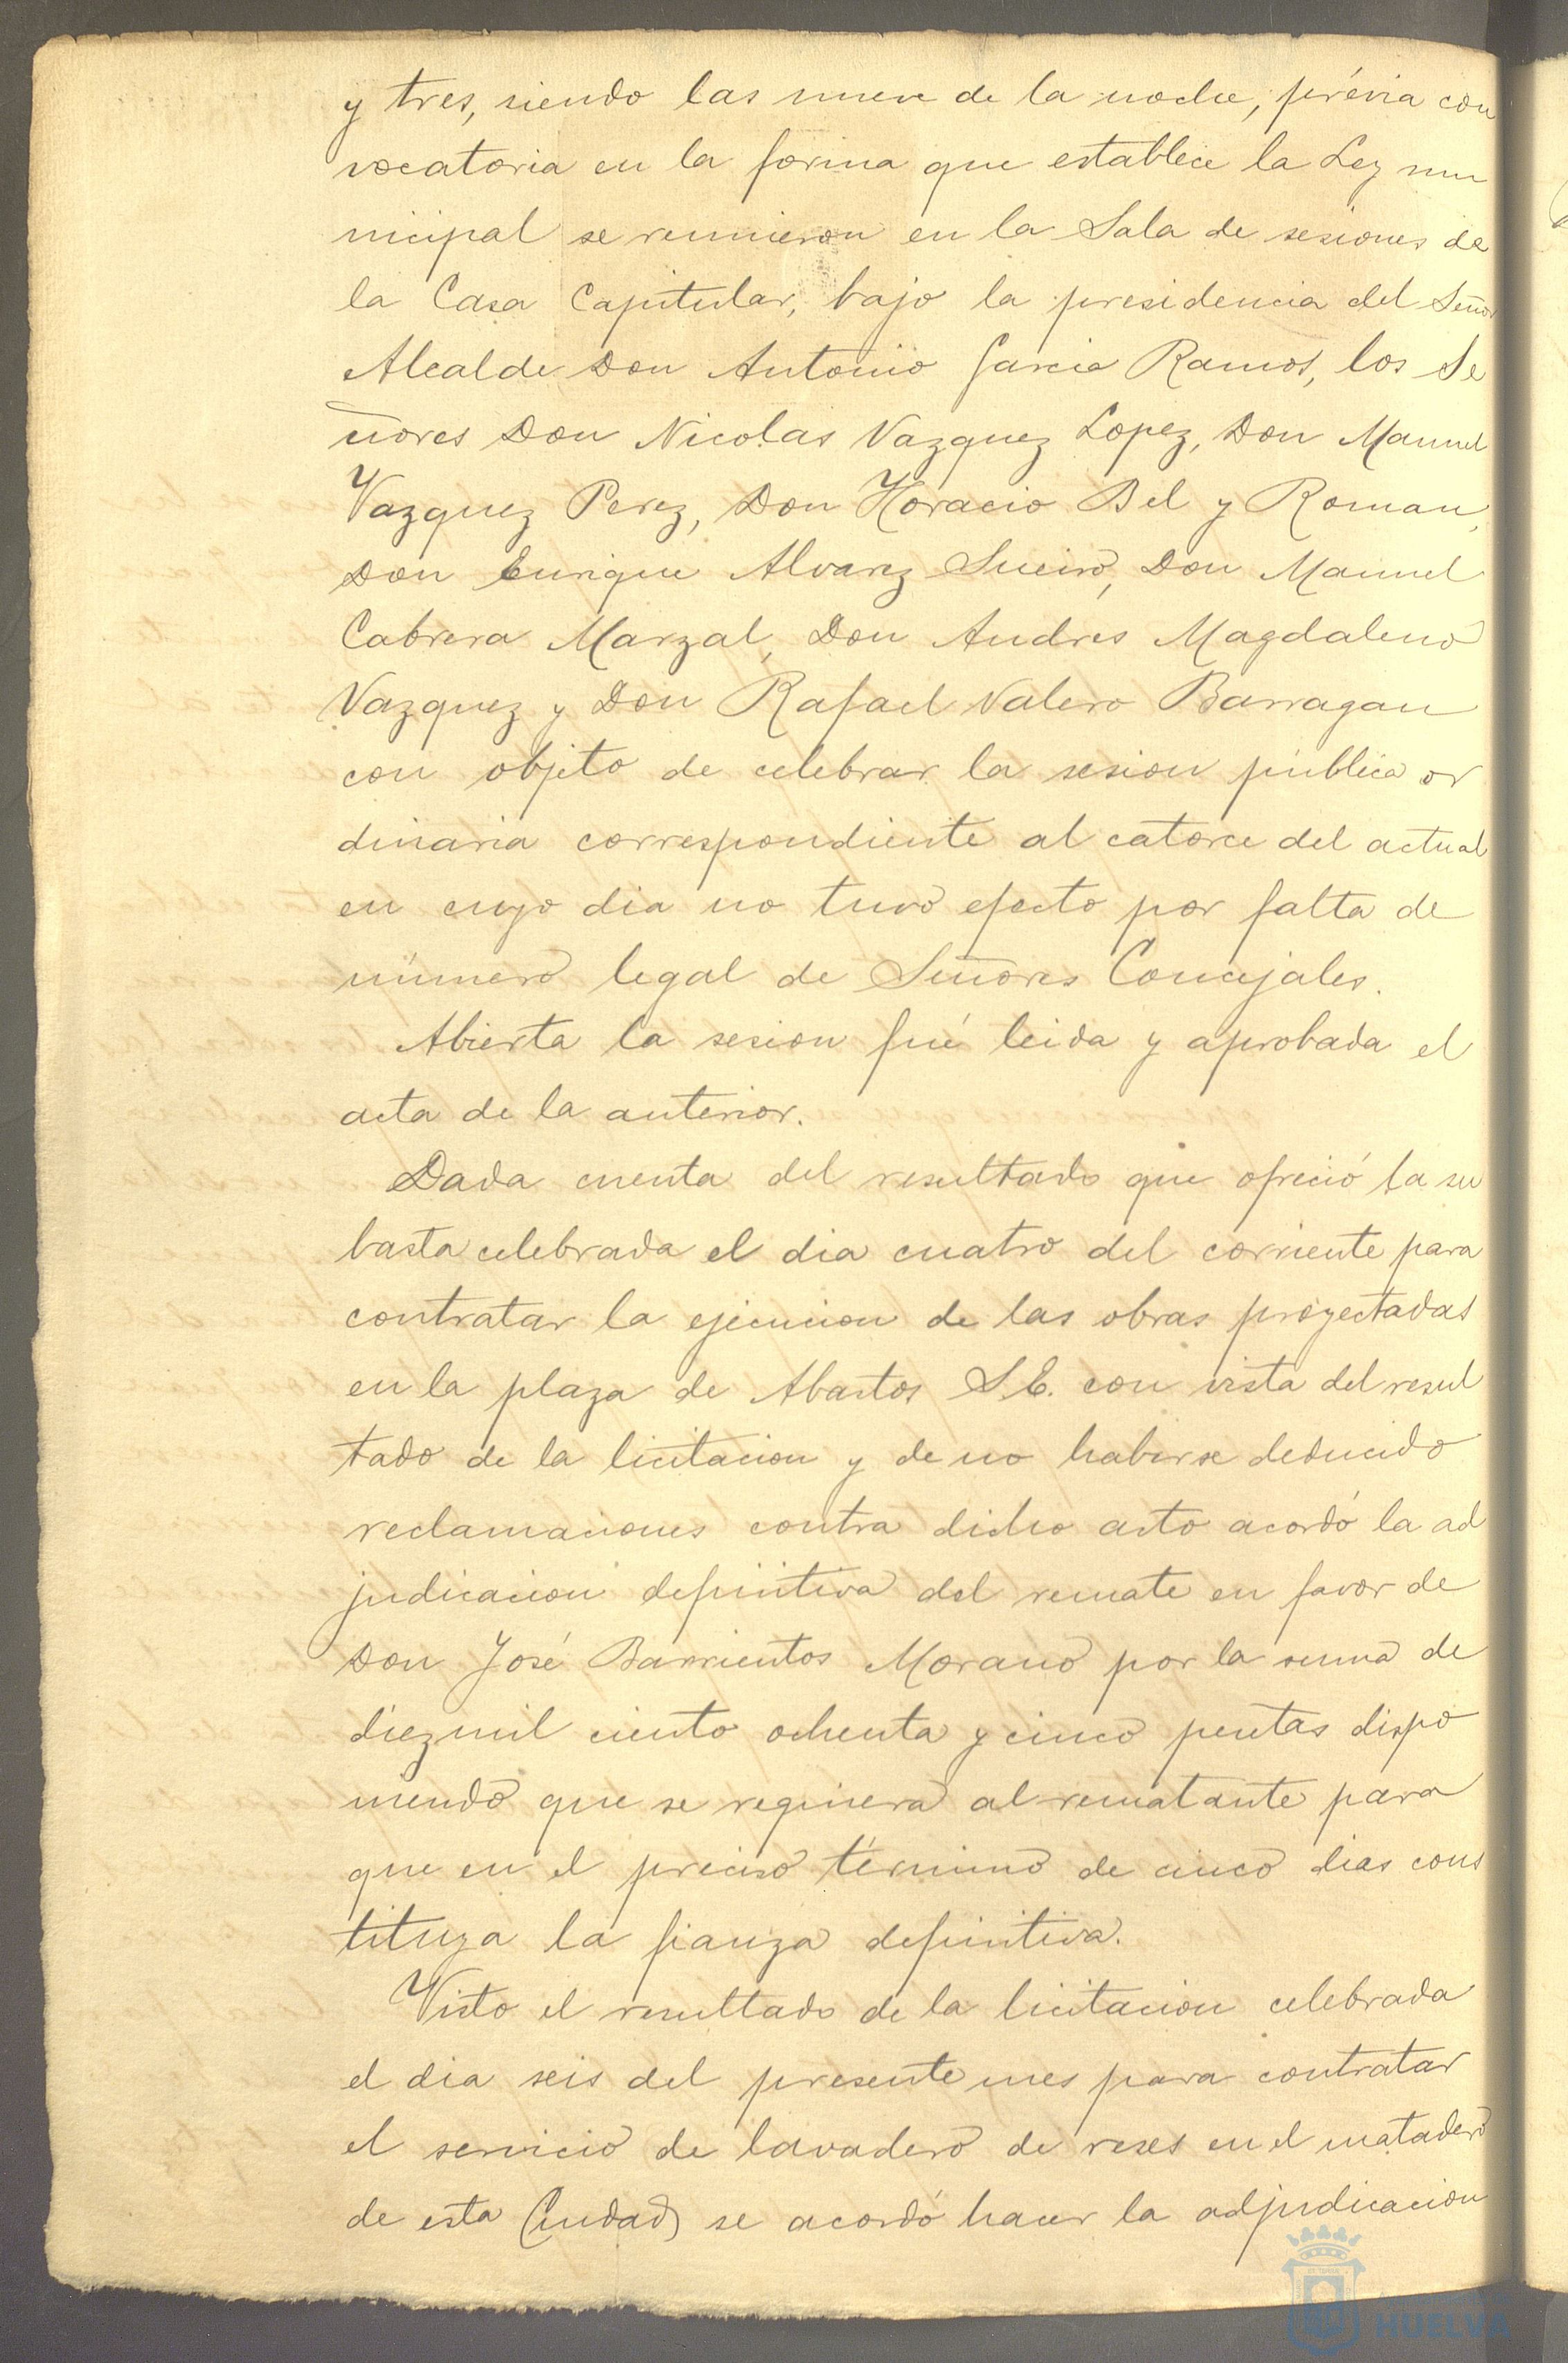 y tres, siendo las nueve de la noche, prévia con
vocatoria en la forma que establece la Ley mu
nicipal se reunieron en la Sala de sesiones de
la Casa Capitular, bajo la presidencia del Señor
Alcalde Don Antonio Garcia Ramos, los Se
ñores Don Nicolas Vazquez Lopez, Don Manuel
Vazquez Perez, Don Horacio Bel y Roman,
Don Enrique Alvarez Sueiro, Don Manuel
Cabrera Marzal, Don Andres Magdaleno
Vazquez y Don Rafael Valero Barragan
con objeto de celebrar la sesion pública or
dinaria correspondiente al catorce del actual
en cuyo dia no tuvo efecto por falta de
número legal de Señores Concejales.
Abierta la sesion fué leida y aprobada el
acta de la anterior.
Dada cuenta del resultado que ofreció la su
basta celebrada el dia cuatro del corriente para
contratar la ejecucion de las obras proyectadas
en la plaza de Abastos S.E. con vista del resul
tado de la licitacion y de no haberse deducido
reclamaciones contra dicho acto acordó la ad
judicacion definitiva del remate en favor de
Don José Barrientos Morano por la suma de
diez mil ciento ochenta y cinco pesetas dispo
niendo que se requiera al rematante para
que en el preciso término de cinco dias cons
tituya la fianza definitiva.
Visto el resultado de la licitacion celebrada
el dia seis del presente mes para contratar
el servicio de lavadero de reses en el matadero
de esta Ciudad se acordó hacer la adjudicacion
HUELVA